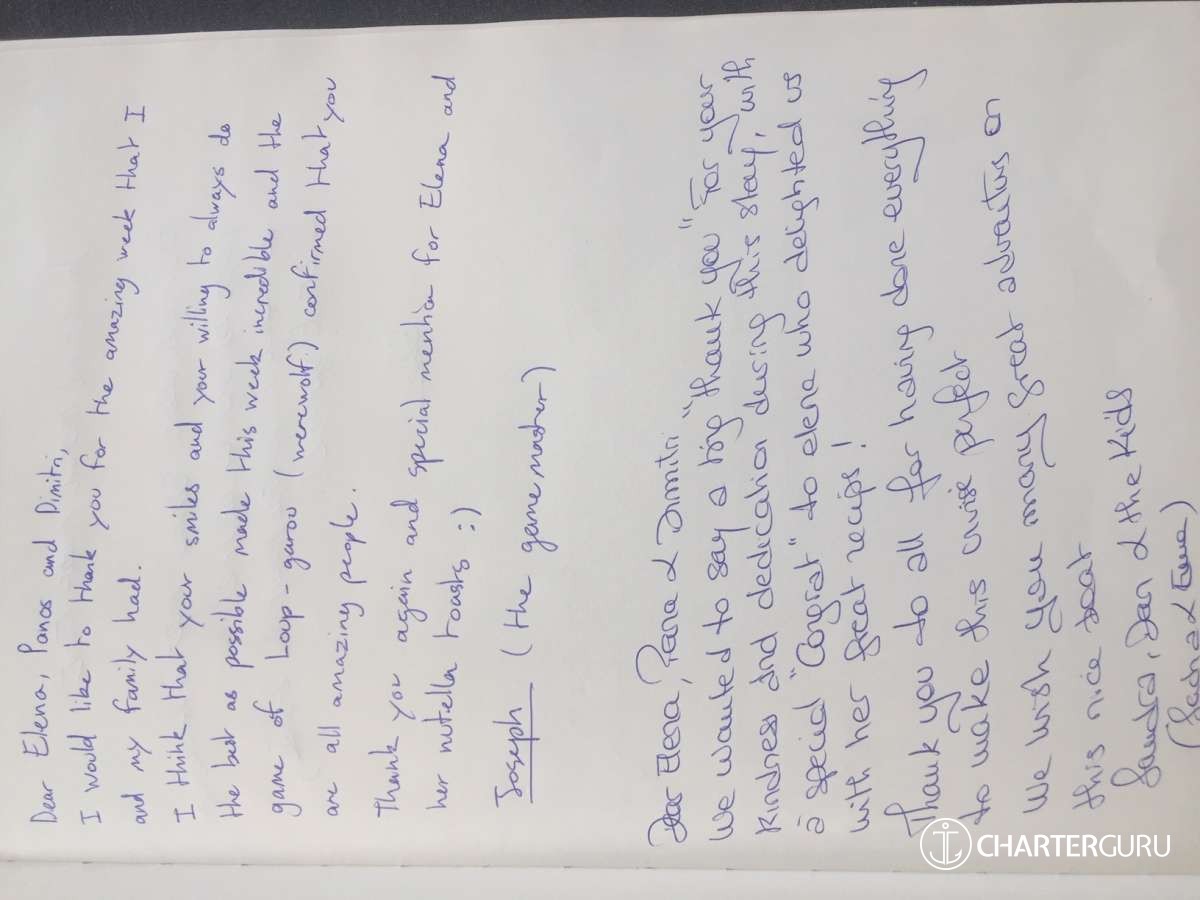 Dear Elena, Panos and Dimitri,
I would like to thank you for the amazing week that I
and my family had.
I think that your smiles and your willing to always do
the best as possible made this week incredible and the
game of Loup-garou (werewolf) confirmed that you
are all amazing people.
Thank you again and special mention for Elena and
her nutella toasts :)
Joseph (the game master)
Dear Elena, Pana & Dimitri
We wanted to say a big "thank you" For your
Kindness and dedication during this stay, with
a special "Congrat" to elena who delighted us
with her great recips!
Thank you to all for having done everything
to make this cruise perfect
We wish you many great advantures on
this nice boat
Sandra, Dan & the Kids
CHARTERGURU